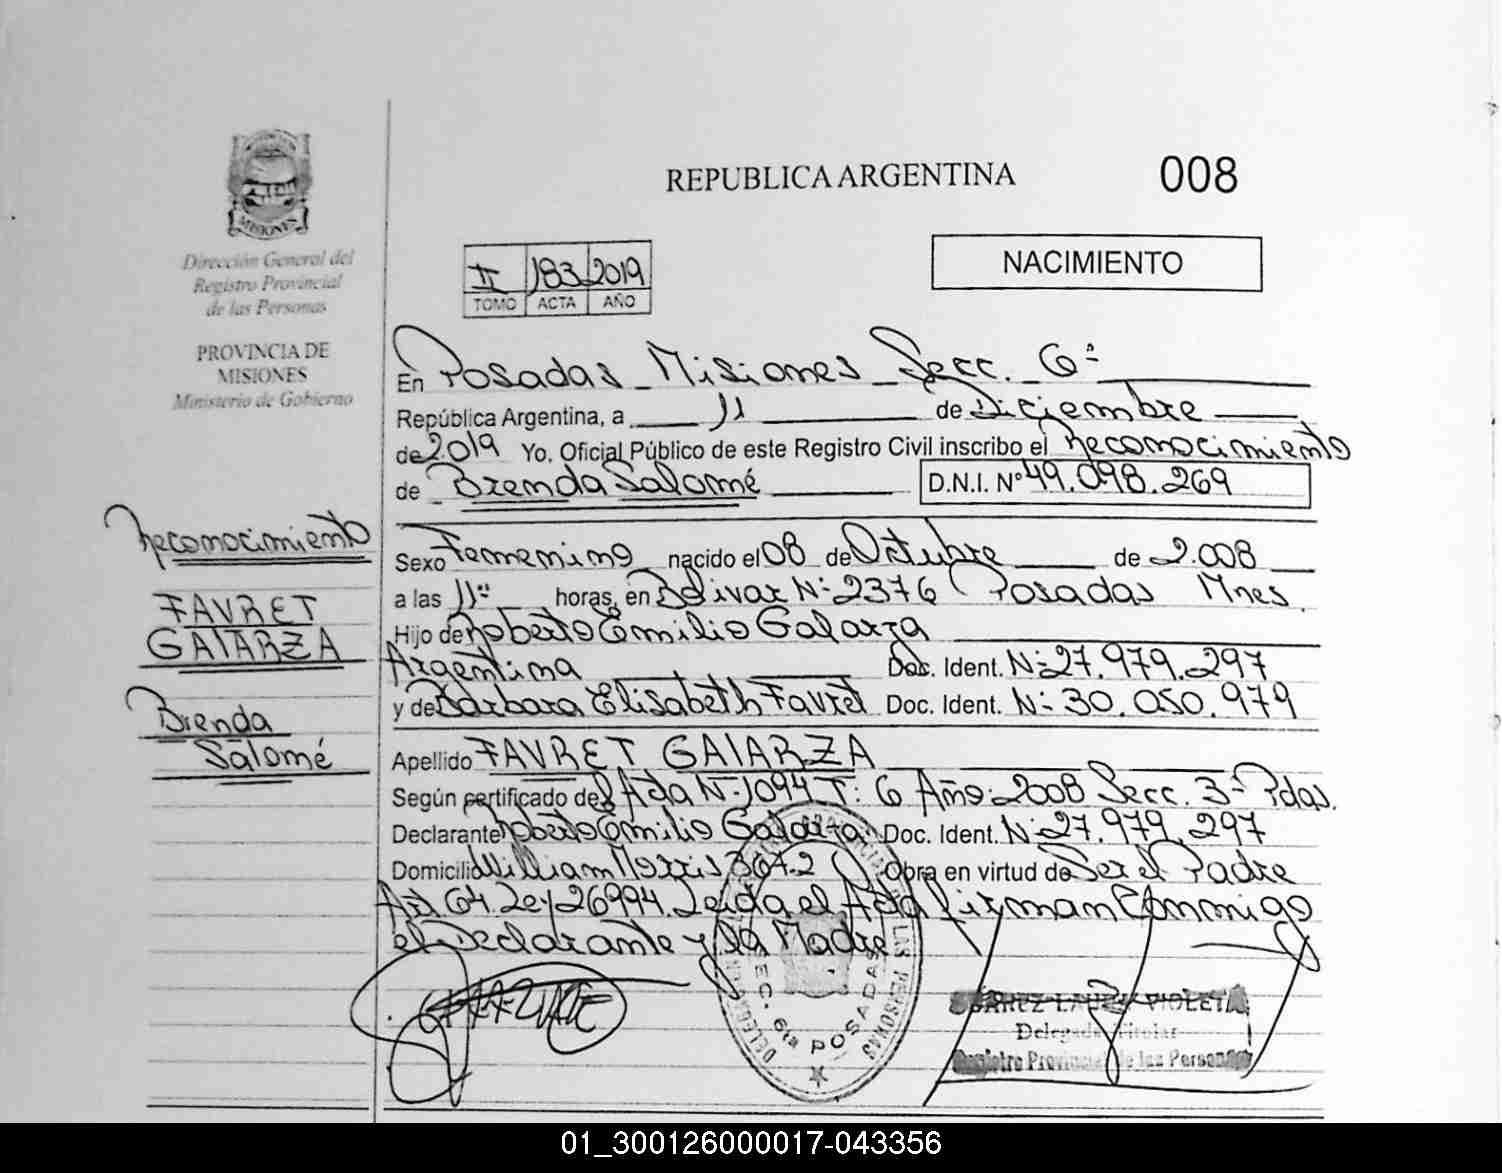 REPUBLICA ARGENTINA
008
MISIONES
Dirección General del
Registro Provincial
de las Personas
PROVINCIA DE
MISIONES
Ministerio de Gobierno
II 183 2019
TOMO ACTA AÑO
NACIMIENTO
En Posadas Misiones Secc. 6ª
República Argentina, a 11 de Diciembre
de 2019 Yo, Oficial Público de este Registro Civil inscribo el Reconocimiento
de Brenda Salomé D.N.I. Nº 49.098.269
Reconocimiento
FAVRET
GALARZA
Brenda
Salomé
Sexo Femenino nacido el 08 de Octubre de 2.008
a las 11ºº horas, en Bolivar Nº 2376 Posadas Mnes.
Hijo de Roberto Emilio Galarza
Argentina Doc. Ident. Nº 27.979.297
y de Bárbara Elisabeth Favret Doc. Ident. Nº 30.050.979
Apellido FAVRET GALARZA
Según certificado del Acta Nº 1094 T: 6 Año: 2008 Secc. 3ª Pdas.
Declarante Roberto Emilio Galarza Doc. Ident. Nº 27.979.297
Domicilio William Morris 3642 Obra en virtud de Ser el Padre
Art 64. Ley 26994. Leida el Acta firman Conmigo
el Declarante y la Madre
SEC. 6ta POSADAS
SUAREZ LAURA VIOLETA
Delegada Titular
Registro Provincial de las Personas
01_300126000017-043356